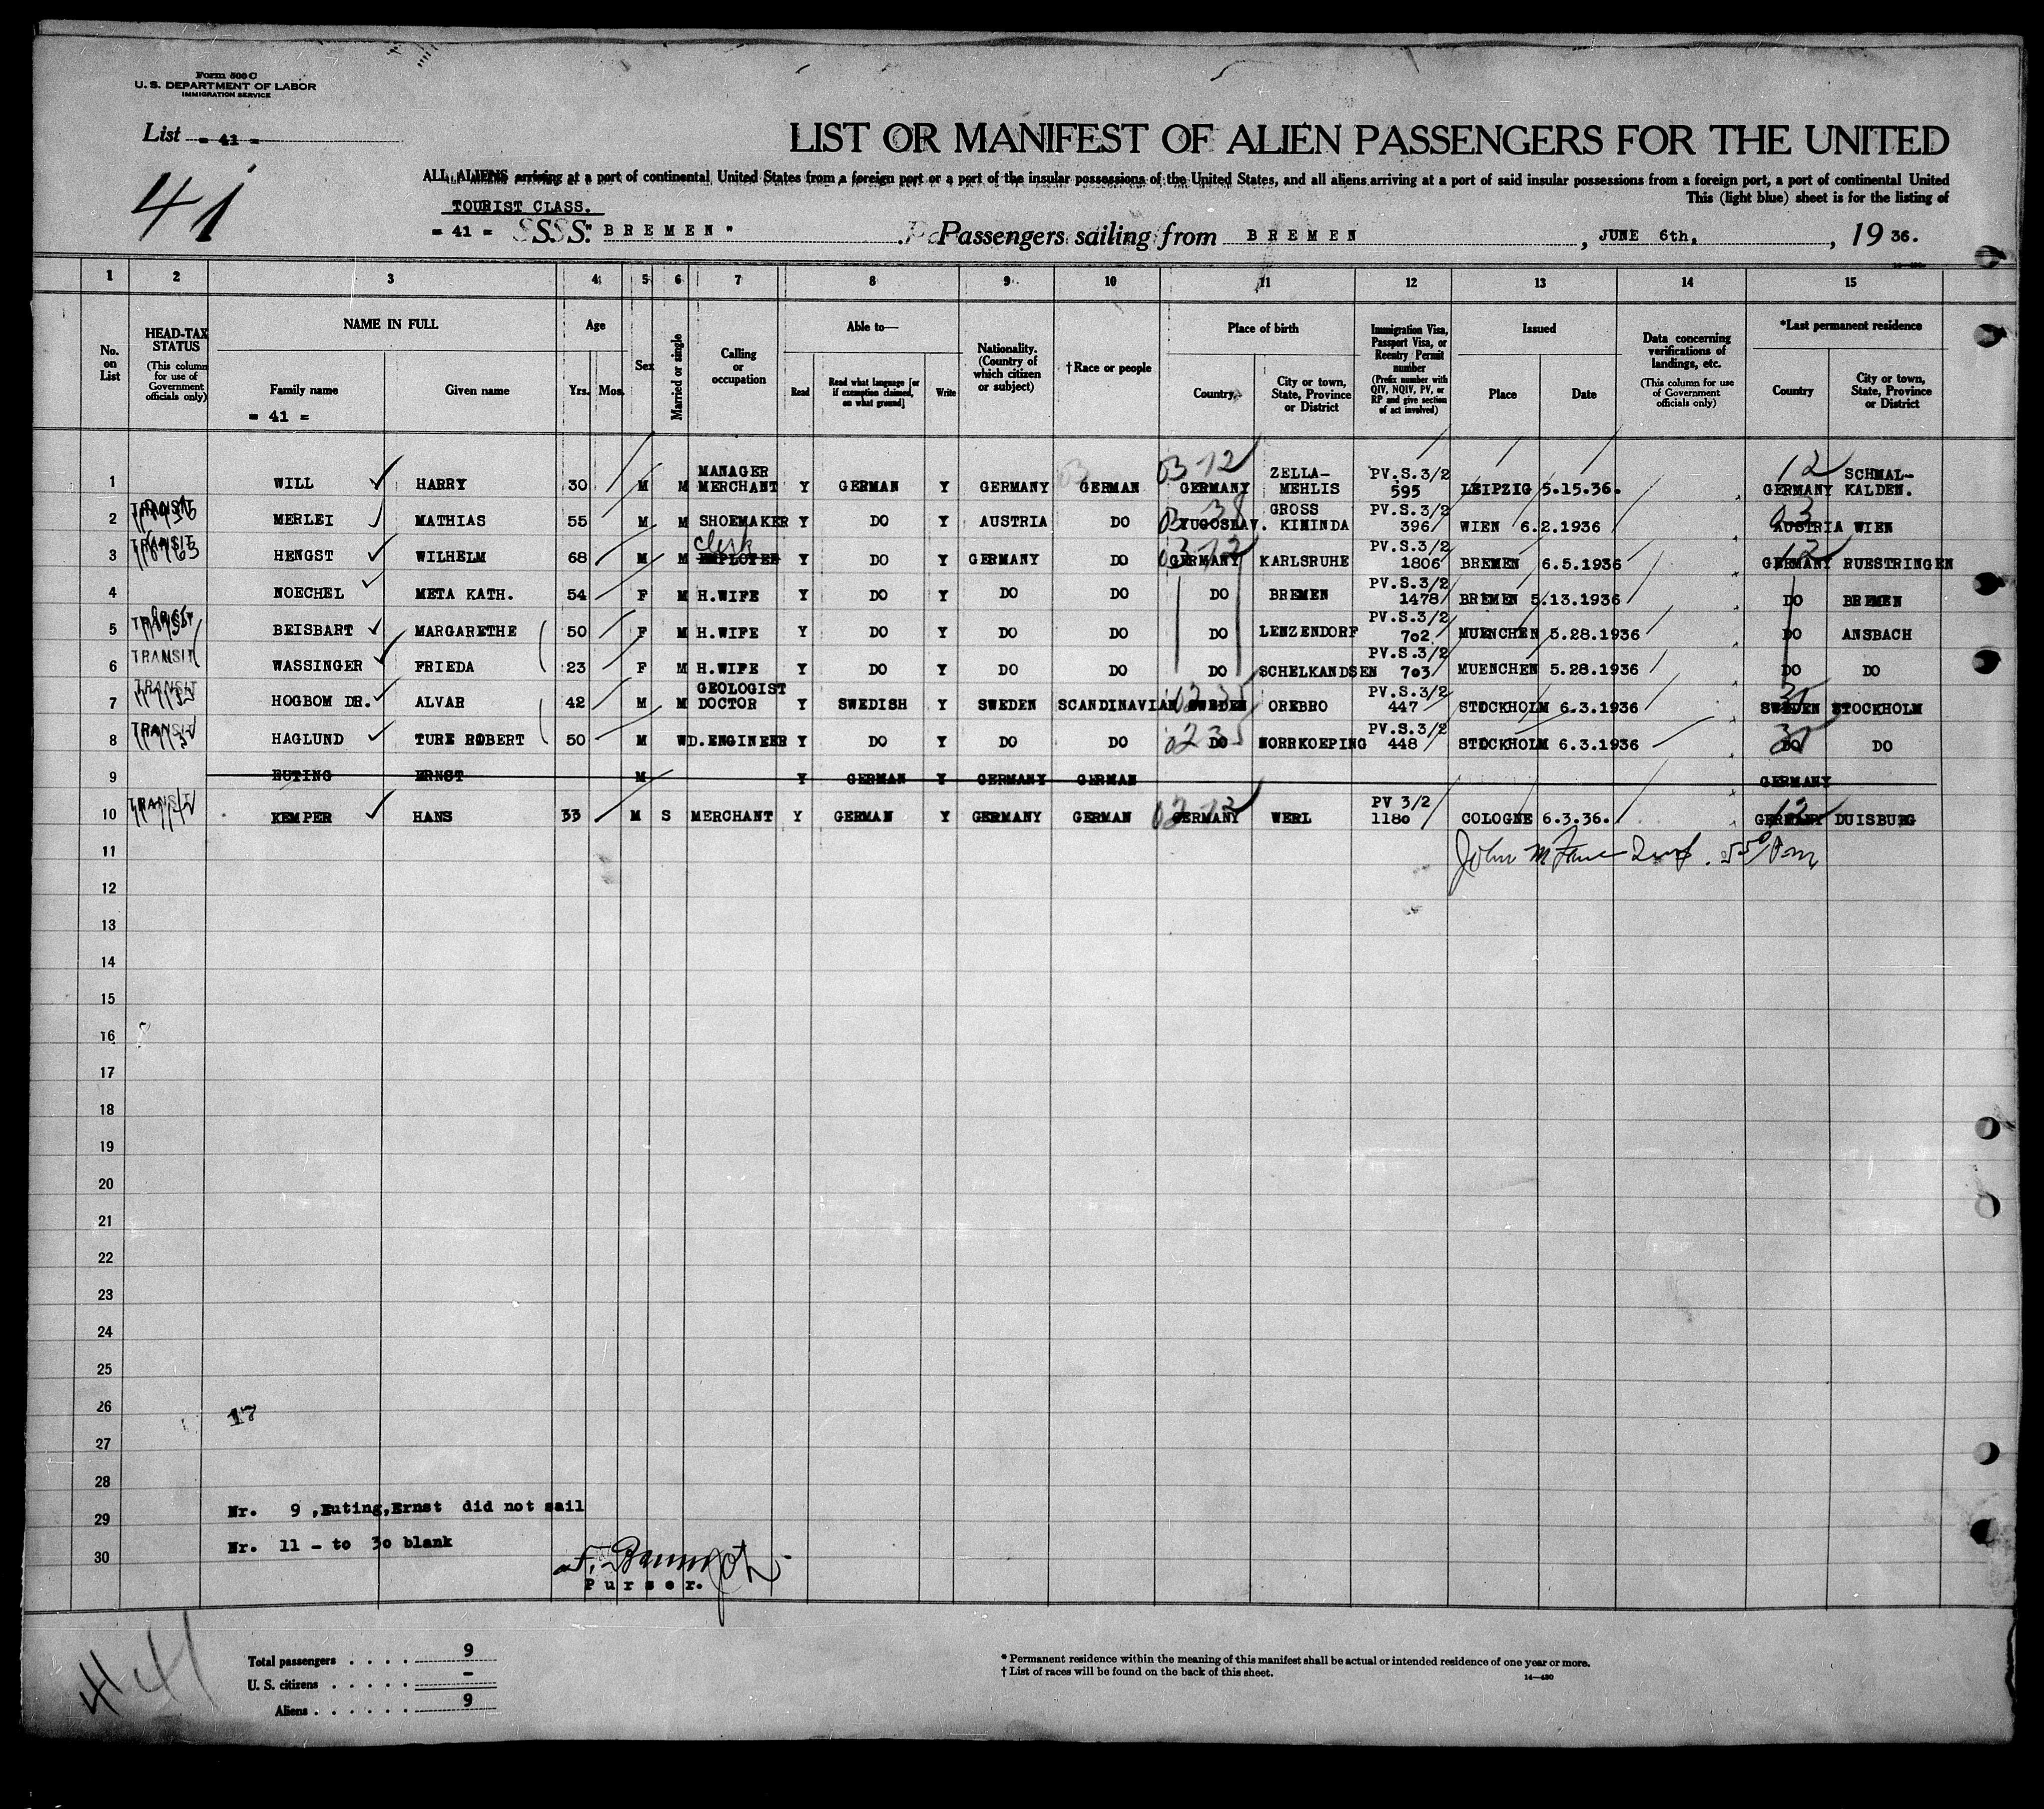 Form 500 C
U. S. DEPARTMENT OF LABOR
IMMIGRATION SERVICE
List = 41 =
41
LIST OR MANIFEST OF ALIEN PASSENGERS FOR THE UNITED
ALL ALIENS arriving at a port of continental United States from a foreign port or a port of the insular possessions of the United States, and all aliens arriving at a port of said insular possessions from a foreign port, a port of continental United
This (light blue) sheet is for the listing of
TOURIST CLASS.
= 41 = S. S. "BREMEN" Passengers sailing from BREMEN, JUNE 6th, 1936.
1 2 3 4 5 6 7 8 9 10 11 12 13 14 15
No. on List
HEAD-TAX STATUS (This column for use of Government officials only)
NAME IN FULL
Family name Given name
= 41 =
Age
Yrs. Mos.
Sex
Married or single
Calling or occupation
Able to—
Read Read what language [or if exemption claimed, on what ground] Write
Nationality. (Country of which citizen or subject)
†Race or people
Place of birth
Country City or town, State, Province or District
Immigration Visa, Passport Visa, or Reentry Permit number (Prefix number with QIV, NQIV, PV, or RP and give section of act involved)
Issued
Place Date
Data concerning verifications of landings, etc. (This column for use of Government officials only)
*Last permanent residence
Country City or town, State, Province or District
1 WILL HARRY 30 M M MANAGER MERCHANT Y GERMAN Y GERMANY GERMAN 03-12 GERMANY ZELLA-MEHLIS PV.S.3/2 595 LEIPZIG 5.15.36. 12 GERMANY SCHMAL-KALDEN.
2 TRANSIT MERLEI MATHIAS 55 M M SHOEMAKER Y DO Y AUSTRIA DO 03 38 YUGOSLAV. GROSS KIKINDA PV.S.3/2 396 WIEN 6.2.1936 03 AUSTRIA WIEN
3 TRANSIT HENGST WILHELM 68 M M clerk EMPLOYER Y DO Y GERMANY DO 03-12 GERMANY KARLSRUHE PV.S.3/2 1806 BREMEN 6.5.1936 12 GERMANY RUESTRINGEN
4 NOECHEL META KATH. 54 F M H.WIFE Y DO Y DO DO DO BREMEN PV.S.3/2 1478 BREMEN 5.13.1936 DO BREMEN
5 TRANSIT BEISBART MARGARETHE 50 F M H.WIFE Y DO Y DO DO DO LENZENDORF PV.S.3/2 702 MUENCHEN 5.28.1936 DO ANSBACH
6 TRANSIT WASSINGER FRIEDA 23 F M H.WIFE Y DO Y DO DO DO SCHELKANDSEN PV.S.3/2 703 MUENCHEN 5.28.1936 DO DO
7 TRANSIT HOGBOM DR. ALVAR 42 M M GEOLOGIST DOCTOR Y SWEDISH Y SWEDEN SCANDINAVIAN 02 35 SWEDEN OREBRO PV.S.3/2 447 STOCKHOLM 6.3.1936 35 SWEDEN STOCKHOLM
8 TRANSIT HAGLUND TURE ROBERT 50 M WD. ENGINEER Y DO Y DO DO 02 35 DO NORRKOEPING PV.S.3/2 448 STOCKHOLM 6.3.1936 35 DO DO
9 EUTING ERNST M Y GERMAN Y GERMANY GERMAN GERMANY
10 TRANSIT KEMPER HANS 33 M S MERCHANT Y GERMAN Y GERMANY GERMAN 03-12 GERMANY WERL PV 3/2 1180 COLOGNE 6.3.36. 12 GERMANY DUISBURG
11 John
12
13
14
15
16
17
18
19
20
21
22
23
24
25
26
17
27
28
Nr. 9 ,Euting,Ernst did not sail
29
Nr. 11 - to 30 blank
30
Purser.
41 41
Total passengers . . . . 9
U. S. citizens . . . . . -
Aliens . . . . . . 9
* Permanent residence within the meaning of this manifest shall be actual or intended residence of one year or more.
† List of races will be found on the back of this sheet.
14—430